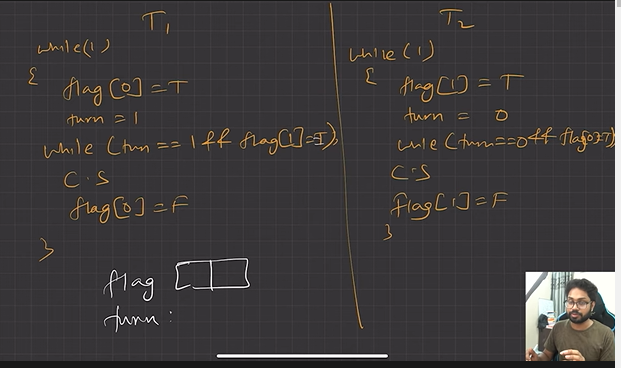 T1
while(1)
{
flag[0] = T
turn = 1
while (turn == 1 && flag[1]=T);
C.S
flag[0] = F
}
T2
while(1)
{
flag[1] = T
turn = 0
while (turn==0 && flag[0]=T)
C.S
flag[1] = F
}
flag
turn: